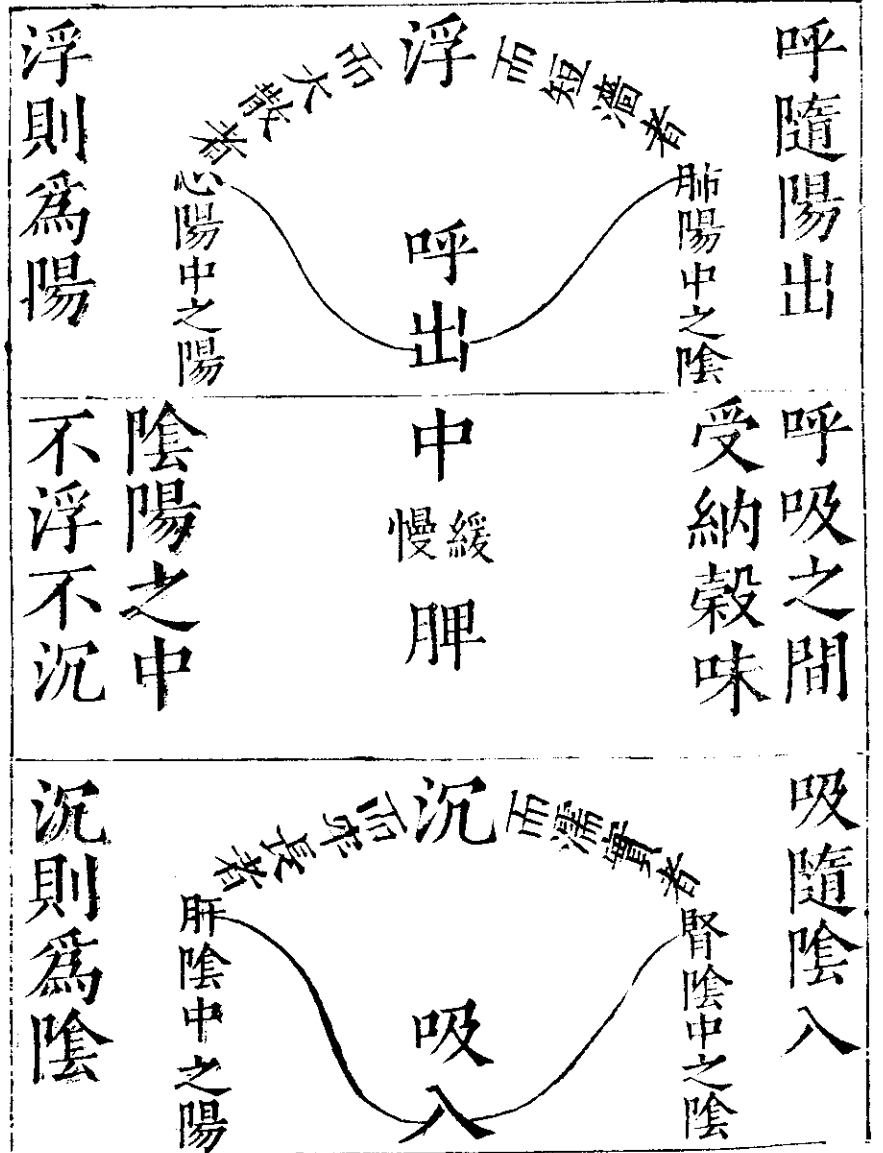 呼隨陽出
浮
而短濇者
肺陽中之陰
而大散者
心陽中之陽
呼出
浮則爲陽
呼吸之間
受納榖味
中
緩慢
脾
陰陽之中
不浮不沉
吸隨陰入
沉
而濡實者
腎陰中之陰
而牢長者
肝陰中之陽
吸入
沉則爲陰